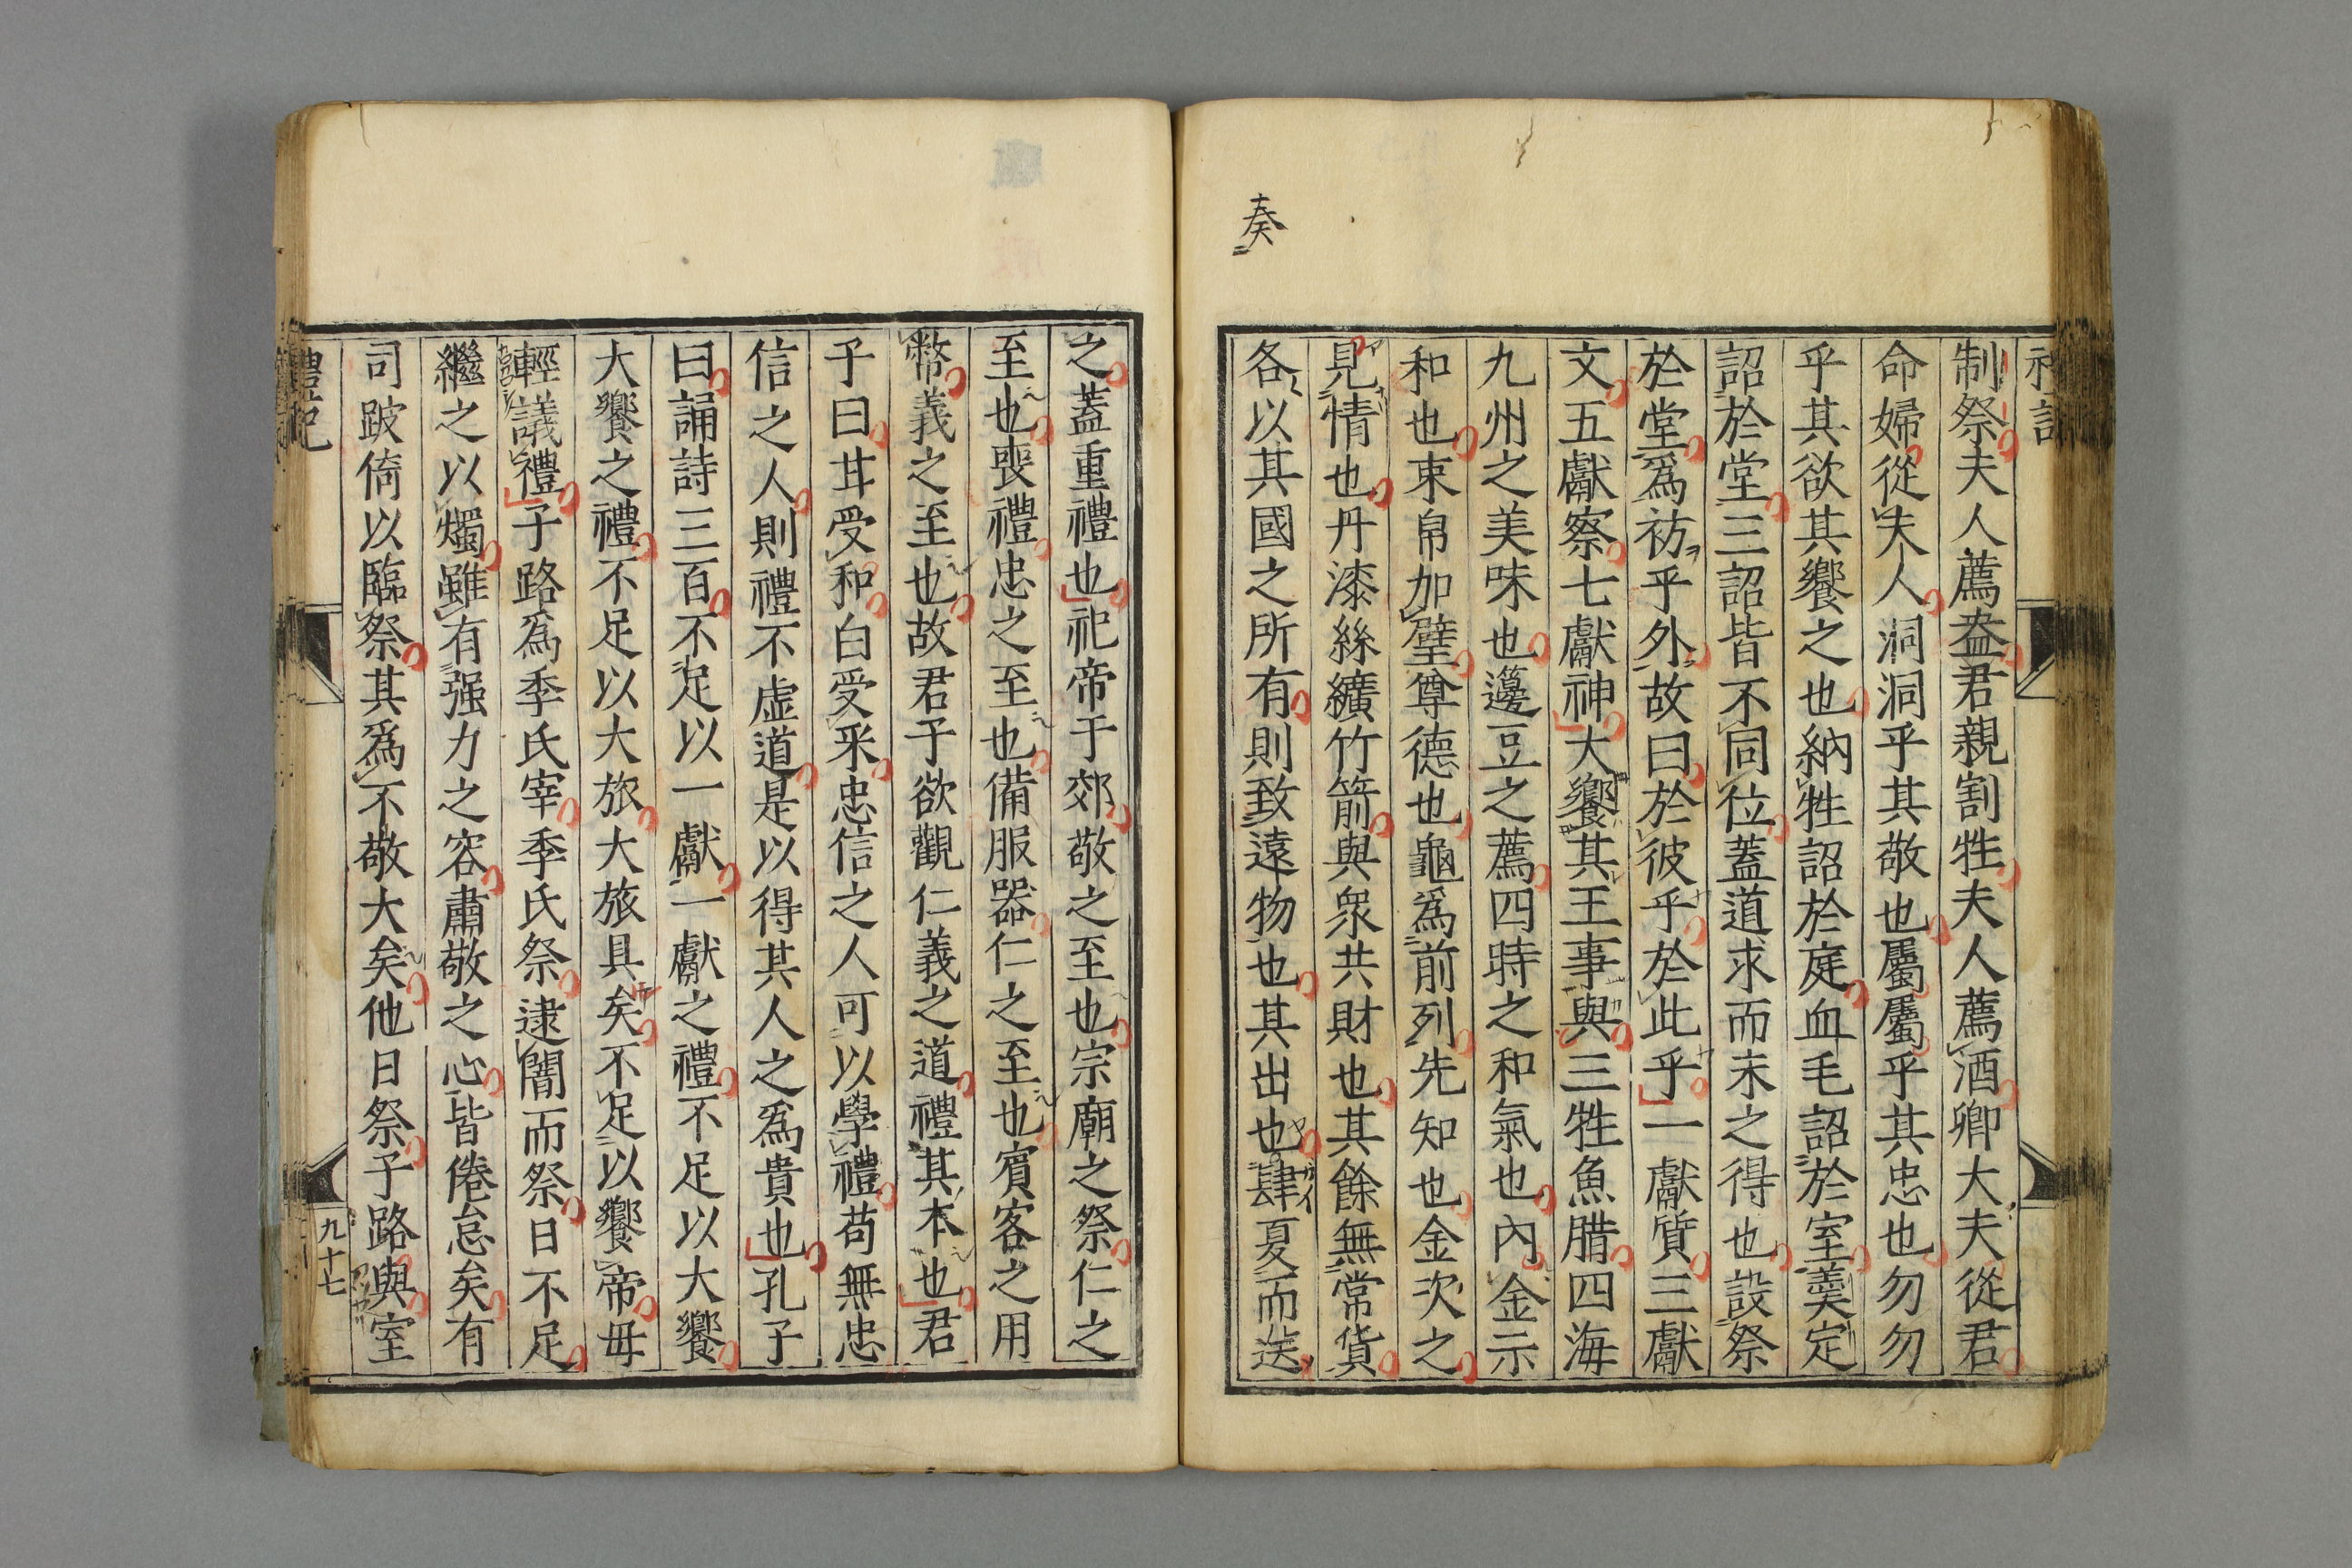 奏
制祭夫人薦盎君親割牲夫人薦酒卿大夫從君
命婦從夫人洞洞乎其敬也屬屬乎其忠也勿勿
乎其欲其饗之也納牲詔於庭血毛詔於室羹定
詔於堂三詔皆不同位蓋道求而未之得也設祭
於堂爲祊乎外故曰於彼乎於此乎一獻質三獻
文五獻察七獻神大饗其王事與三牲魚腊四海
九州之美味也籩豆之薦四時之和氣也內金示
和也束帛加璧尊德也龜爲前列先知也金次之
見情也丹漆絲纊竹箭與衆共財也其餘無常貨
各以其國之所有則致遠物也其出也肆夏而送
之蓋重禮也祀帝于郊敬之至也宗廟之祭仁之
至也喪禮忠之至也備服器仁之至也賓客之用
幣義之至也故君子欲觀仁義之道禮其本也君
子曰甘受和白受采忠信之人可以學禮苟無忠
信之人則禮不虛道是以得其人之爲貴也孔子
曰誦詩三百不足以一獻一獻之禮不足以大饗
大饗之禮不足以大旅大旅具矣不足以饗帝毋
輕議禮子路爲季氏宰季氏祭逮闇而祭日不足
繼之以燭雖有强力之容肅敬之心皆倦怠矣有
司跛倚以臨祭其爲不敬大矣他日祭子路與室
禮記
九十七